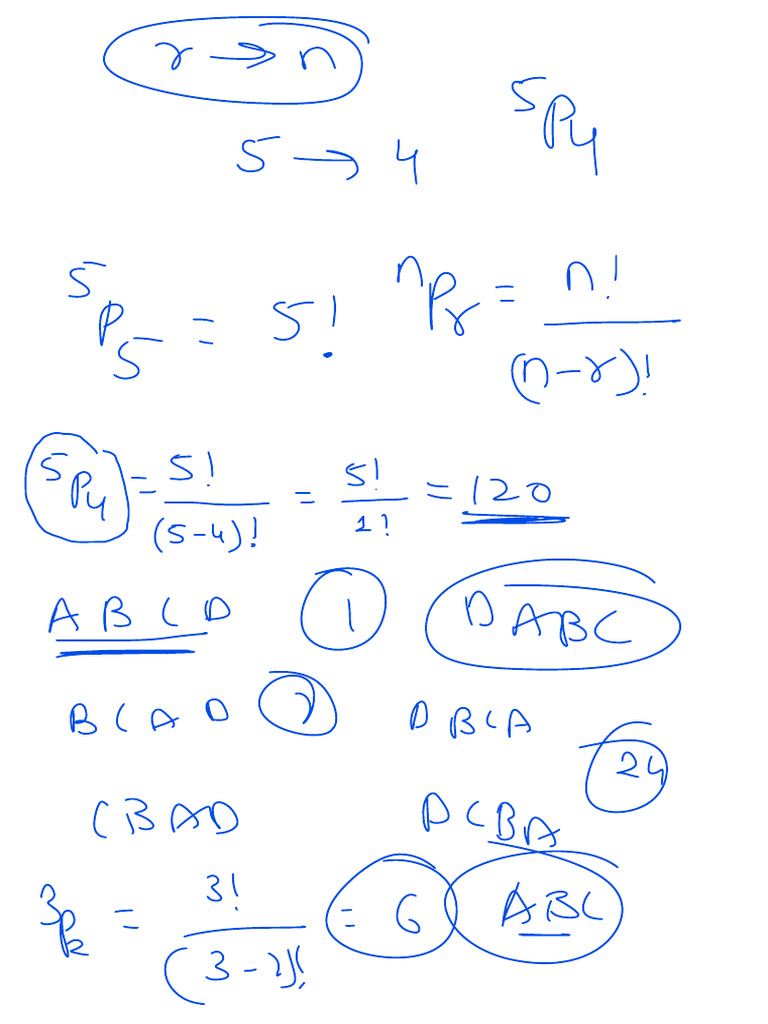 r → n
5 → 4
⁵P₄
⁵P₅ = 5!
ⁿPᵣ = n! / (n-r)!
⁵P₄ = 5! / (5-4)! = 5! / 1! = 120
A B C D 1 D ABC
B C A D 2 D B C A
24
C B A D D C B A
³P₂ = 3! / (3-2)! = 6 ABC